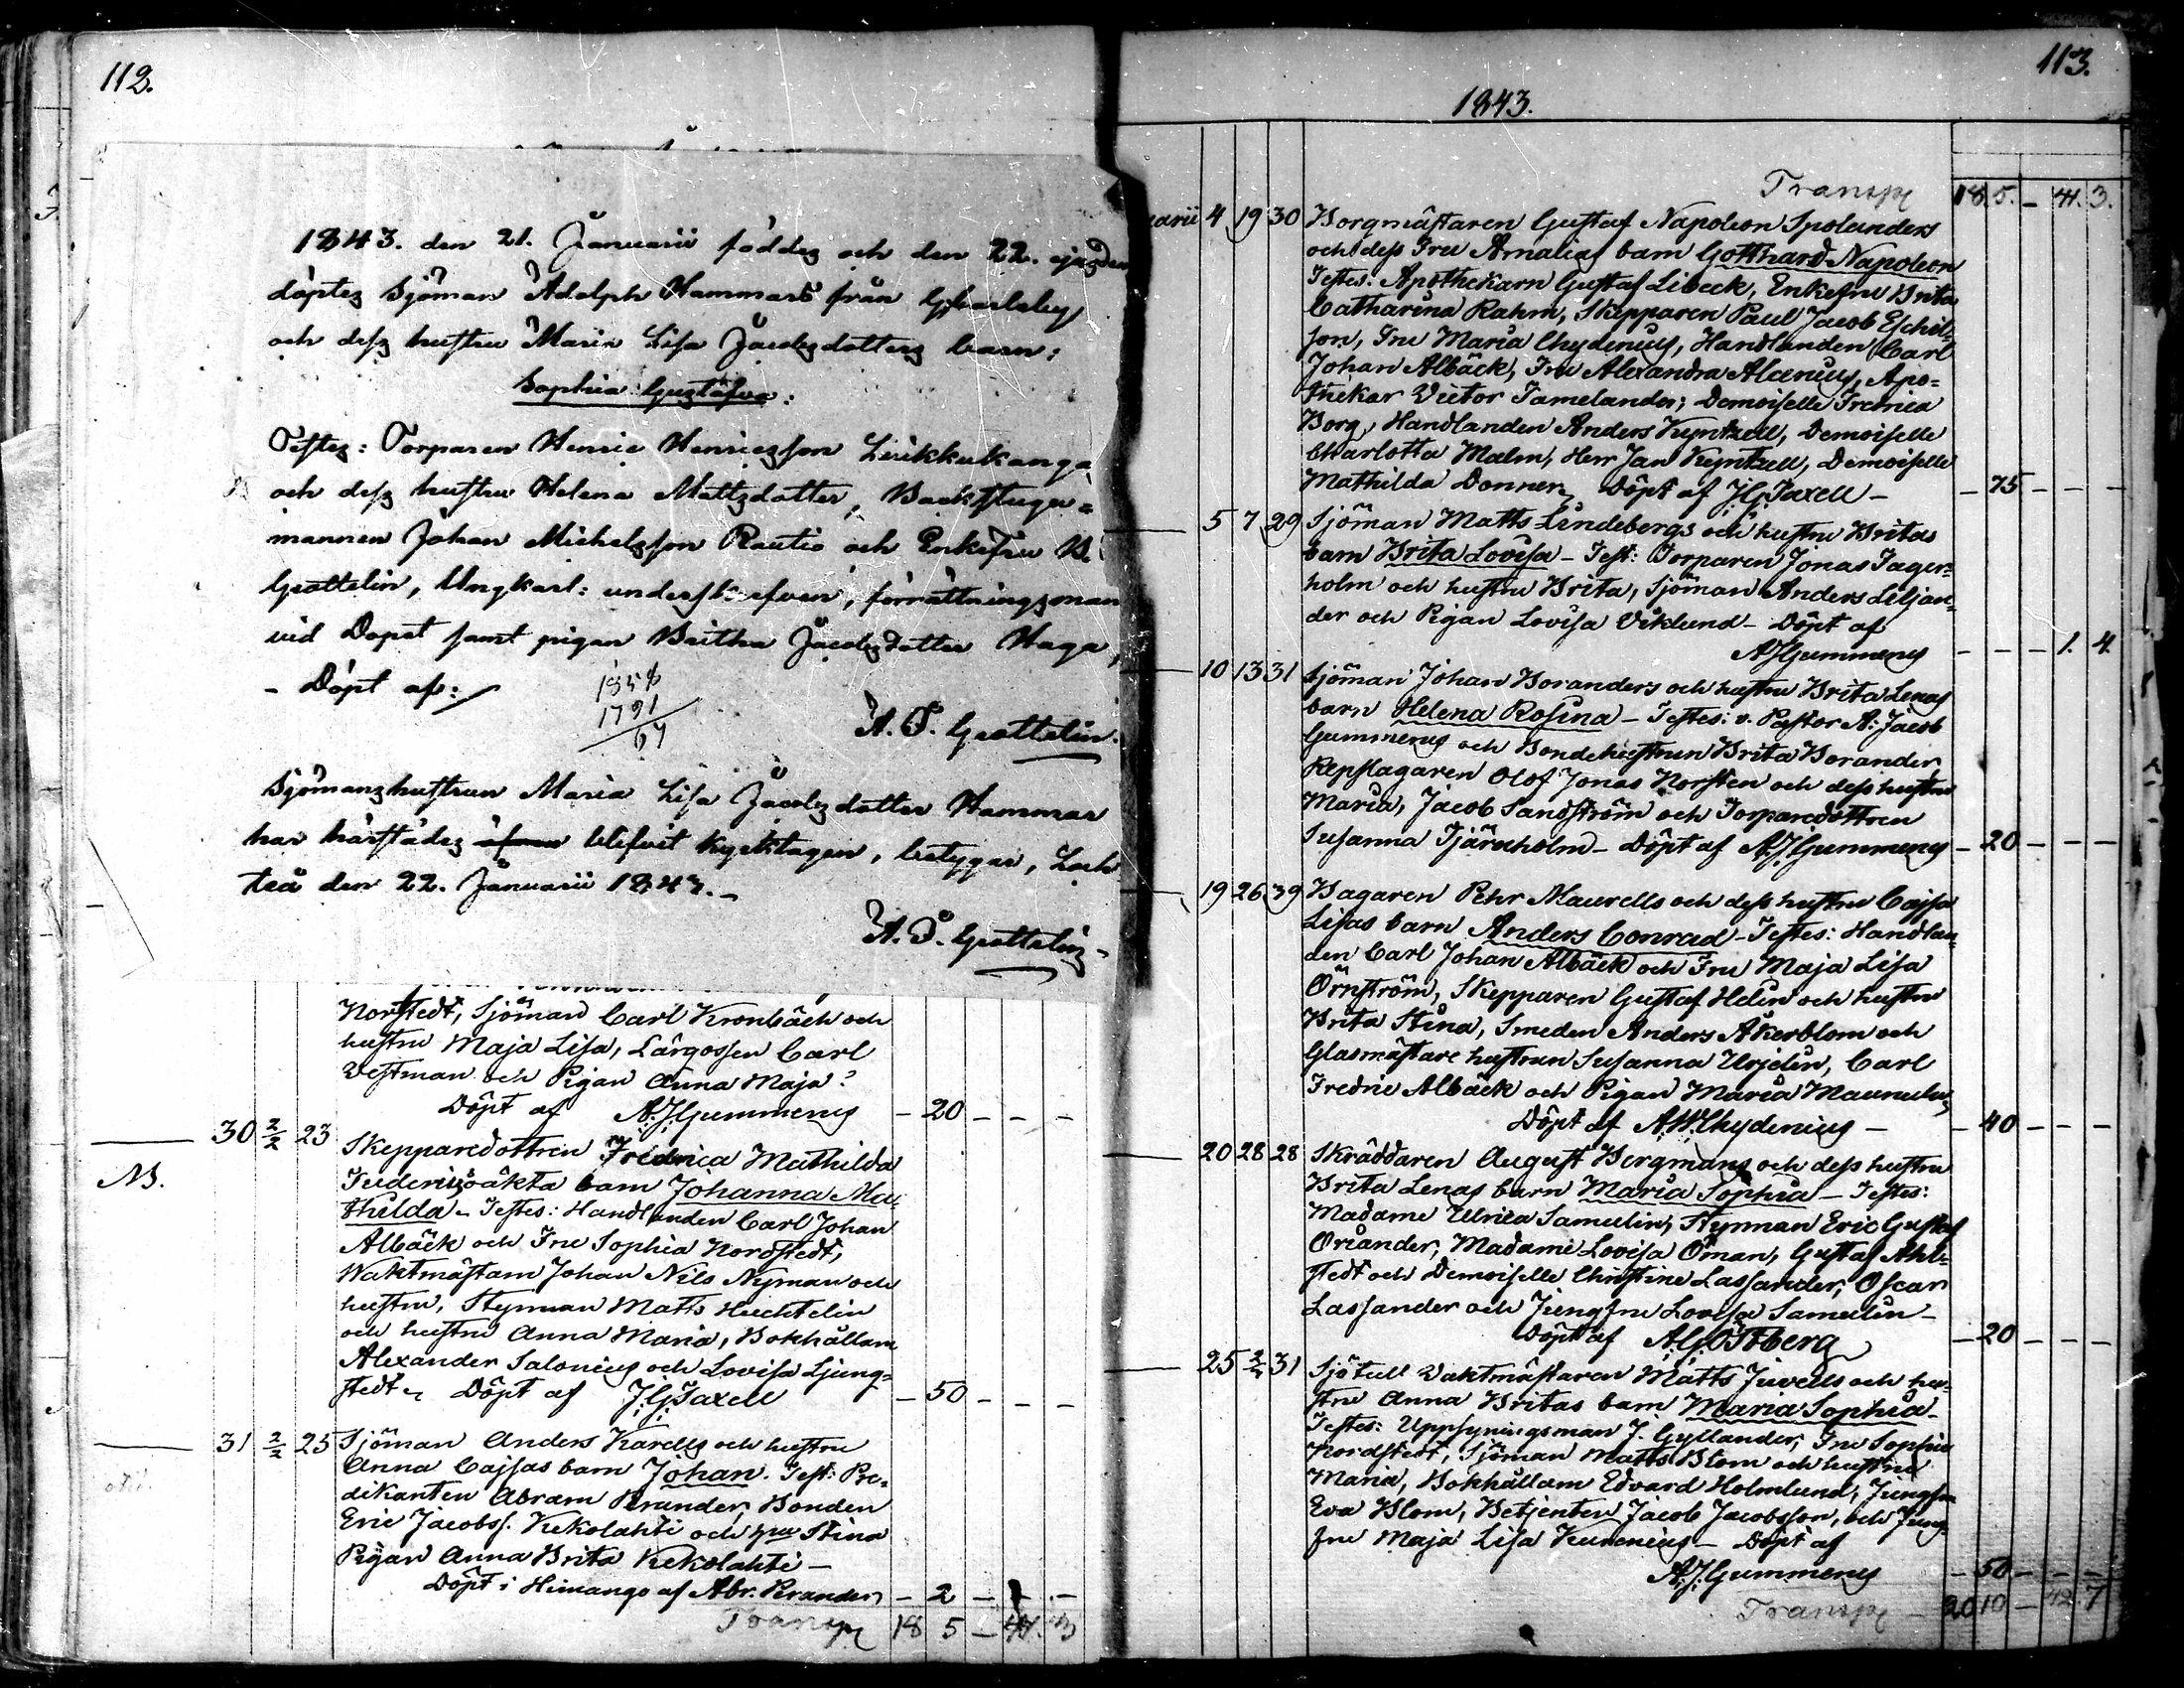 112.
1843. den 21. Januarii föddes och den 22. ejusdem
döptes Sjöman Adolph Hammars från G,Carleby
och dess hustru Maria Lisa Jacobsdotters barn:
Sophia Gustafva:
Testes: Torparen Henric Henricsson Leikkukanga
och dess hustru Helena Mattsdotter, Backstugu=
mannen Johan Michelsson Rautio och Enkefru B.
Grottelin, Ungkarl: underskrefven, förrättningsman
vid Dopet samt pigan Britha Jacobsdotter Haga,
- Döpt af:
1858
1791
67
A. P. Grottelin.
Sjömanshustrun Maria Lisa Jacobsdotter Hammar
har härstädes blifvit kyrktagen, betygar, Loch=
teå den 22. Januarii 1843.-
A. P. Grottelin
Norstedt, Sjöman Carl Kronbäck och
hustru Maja Lisa, Färgossen Carl
Westman och Pigan Anna Maja?
Döpt af A.J.Gummerus - 20 - - -
30 2/2 23 Skepparedottren Fredrica Mathilda
NB.
oäkta barn Johanna Ma-
thilda - Testes: Handlanden Carl Johan
Albäck och Fru Sophia Nordstedt,
Waktmästarn Johan Nils Nyman och
hustru, Styrman Matts Huchtelin
och hustru Anna Maria, Bokhållarn
Alexander Salonius och Lovisa Ljung=
stedt - Döpt af J.G.Taxell - 50 - - -
31 2/2 25 Sjöman Anders Karells och hustru
Anna Cajsas barn Johan. Test: Pre-
dikanten Abram Perander, Bonden
Eric Jacobss. Kekolahti och hru Stina
Pigan Anna Brita Kekolahti -
Döpt i Himango af Abr. Perander - 2 - - -
Transp 18 5 - 41. 3
113.
1843.
Transp 18 5. - 41. 3.
uarii 4 19 30 Borgmästaren Gustaf Napoleon Spolanders
och dess Fru Amalias barn Gotthard Napoleon
Testes: Apothekarn Gustaf Libeck, Enkefru Brita
Catharina Rahm, Skepparen Paul Jacob Eschil=
son, Fru Maria Chydenius, Handlanden Carl
Johan Albäck, Fru Alexandra Alcenius, Apo=
thekar Victor Tamelander, Demoiselle Fredrica
Borg, Handlanden Anders Kyntzell, Demoiselle
Charlotta Malm, Herr Jan Kyntzell, Demoiselle
Mathilda Donner, Döpt af J.G.Taxell - - 75 - - -
5 7 29 Sjöman Matts Lindebergs och hustru Britas
barn Brita Lovisa - Test: Torparen Jonas Jager=
holm och hustru Brita, Sjöman Anders Liljan=
der och Pigan Lovisa Viklund - Döpt af
A.J.Gummerus - - - 1. 4.
10 13 31 Sjöman Johan Boranders och hustru Brita Lenas
barn Helena Rosina - Testes: v. Pastor A: Jacob
Gummerus och Bondehustrun Brita Borander
Repslagaren Olof Jonas Norsten och dess hustru
Maria, Jacob Sandström och Torparedottren
Susanna Tjäruholm - Döpt af A.J.Gummerus - 20 - - -
19 26 39 Bagaren Pehr Maurells och dess hustru Cajsa
Lisas barn Anders Conrad - Testes: Handlan=
den Carl Johan Albäck och Fru Maja Lisa
Örnström, Skepparen Gustaf Helin och hustru
Brita Stina, Smeden Anders Åkerblom och
Glasmästare hustrun Susanna Urjelin, Carl
Fredric Albäck och Pigan Maria
Döpt af A.W.Chydenius - - 40 - - -
20 28 28 Skräddaren August Bergmans och dess hustru
Brita Lenas barn Maria Sophia - Testes:
Madame Ulrica Samulin, Styrman Eric Gustaf
Oriander, Madame Lovisa Öman, Gustaf Ahl=
stedt och Demoiselle Christine Lassander, Oscar
Lassander och Jungfru Lovisa Samulin -
Döpt af A.G.Östberg - 20 - - -
25 2/2 31 Sjötull Vaktmästaren Matts Juvells och hu-
stru Anna Britas barn Maria Sophia -
Testes: Uppsyningsman J. Gyllander, Fru Sophia
Nordstedt, Sjöman Matts Blom och hustru
Maria, Bokhållarn Edvard Holmlund, Jungfru
Eva Blom, Betjenten Jacob Jacobsson, och Jung=
fru Maja Lisa Kurenius - Döpt af
A.J.Gummerus - 50 - - -
Transp - 20 10 - 42. 7